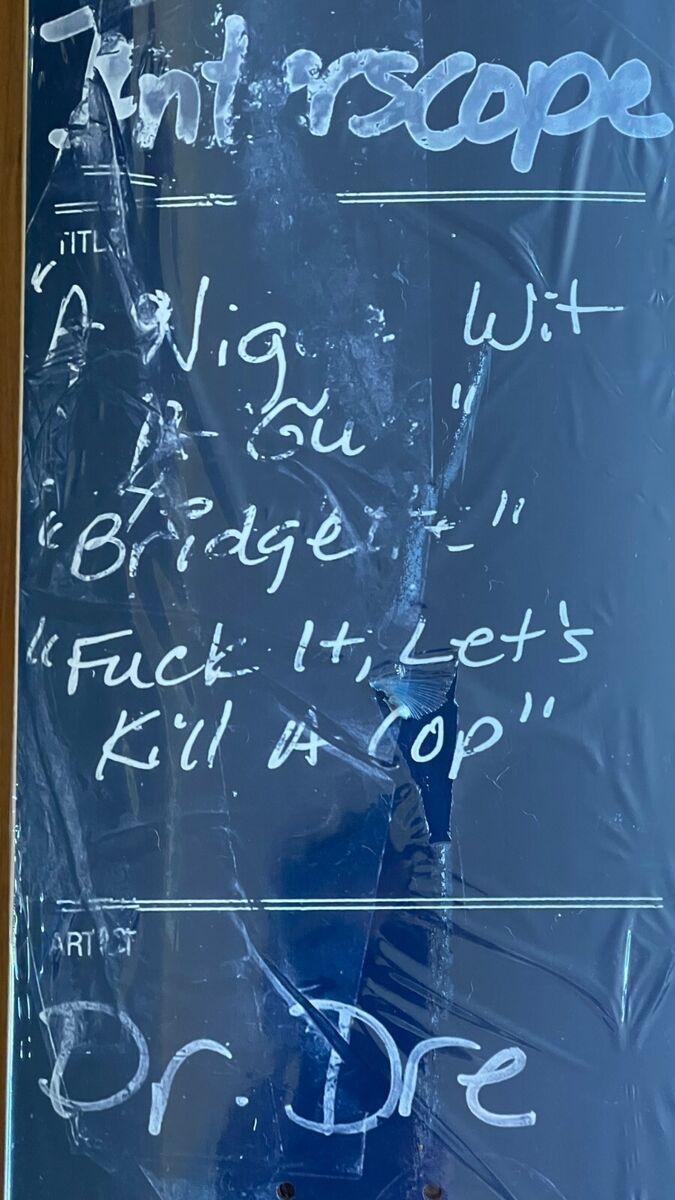 Interscope
TITLE
"A Nig Wit
A Gu "
"Bridgette"
"Fuck It, Let's
Kill A Cop"
ARTIST
Dr. Dre